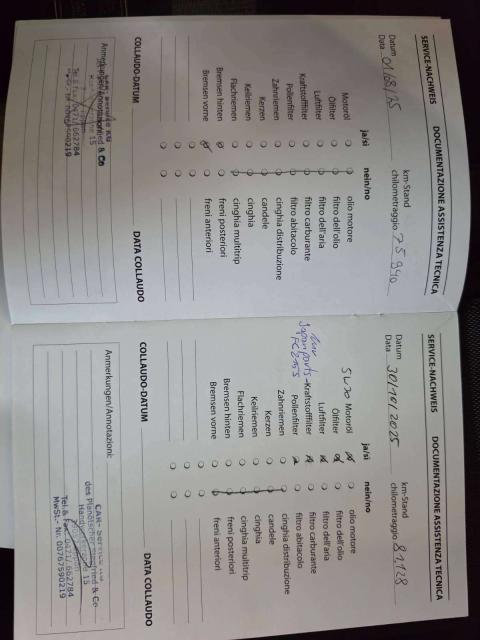 SERVICE-NACHWEIS DOCUMENTAZIONE ASSISTENZA TECNICA
Datum km-Stand
Data 01/08/25 chilometraggio 75 940
ja/sì nein/no
Motoröl olio motore
Ölfilter filtro dell'olio
Luftfilter filtro dell'aria
Kraftstofffilter filtro carburante
Pollenfilter filtro abitacolo
Zahnriemen cinghia distribuzione
Kerzen candele
Keilriemen cinghia
Flachriemen cinghia multitrip
Bremsen hinten freni posteriori
Bremsen vorne freni anteriori
COLLAUDO-DATUM DATA COLLAUDO
Anmerkungen/Annotazioni:
CAR-Service KG
& Co
15
Tel.& Fax 0471/ 662784
00767590219
SERVICE-NACHWEIS DOCUMENTAZIONE ASSISTENZA TECNICA
Datum km-Stand
Data 30/10/2025 chilometraggio 81128
ja/sì nein/no
5W30 Motoröl olio motore
Ölfilter filtro dell'olio
Luftfilter filtro dell'aria
Kraftstofffilter filtro carburante
Japanparts Pollenfilter filtro abitacolo
Zahnriemen cinghia distribuzione
Kerzen candele
Keilriemen cinghia
Flachriemen cinghia multitrip
Bremsen hinten freni posteriori
Bremsen vorne freni anteriori
COLLAUDO-DATUM DATA COLLAUDO
Anmerkungen/Annotazioni:
CAR-Service KG
des Plandtscher Manfred & Co
15
Tel.& Fax 0471/ 662784
MwSt.- Nr. 00767590219